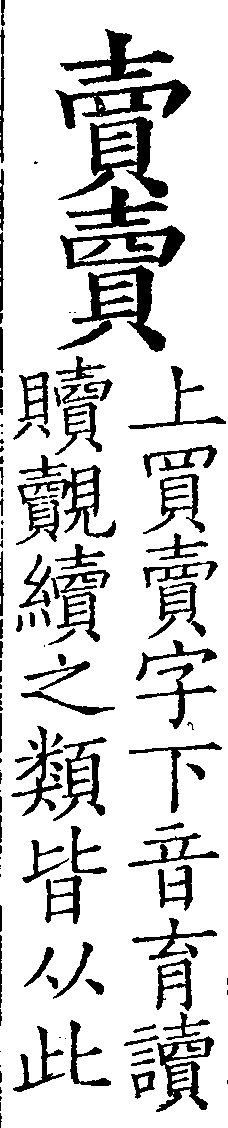 賣𧶠
上買賣字下音育讀
贖覿續之類皆从此